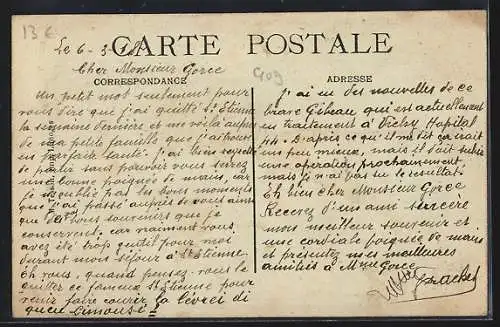 13 €
Le 6-3-
CARTE POSTALE
Cher Monsieur Gorce
CORRESPONDANCE
un petit mot seulement pour
vous dire que j'ai quitté St Etienne
la semaine dernière et me voilà auprès
de ma petite famille que j'ai trouvé
en parfaite santé. J'ai bien regretté
de partir sans pouvoir vous serrez
une bonne poignée de mains, car
je oublie pas les bons moments
que j'ai passé auprès de vous ainsi
que des bons souvenirs que je
conservent. car vraiment vous
avez été trop gentil pour moi
durant mois séjour à St Etienne.
Eh vous, quand pensez-vous le
quitter ce fameux St Etienne pour
venir faire courir la lièvre di
queu Limouse
ADRESSE
J'ai eu des nouvelles de ce
brave Gibeau qui est actuellement
en traitement à Vichy Hopital
44. D'après ce qu'il me dit ça irait
un peu mieux, mais il doit subir
une opération prochainement
mais je n'ai pas su le resultat.
Eh bien Cher Monsieur Gorce
Recevez d'un ami sincère
mon meilleur souvenir et
une cordiale poignée de mains
et présentez mes meilleures
amitiés à Mme Gorce